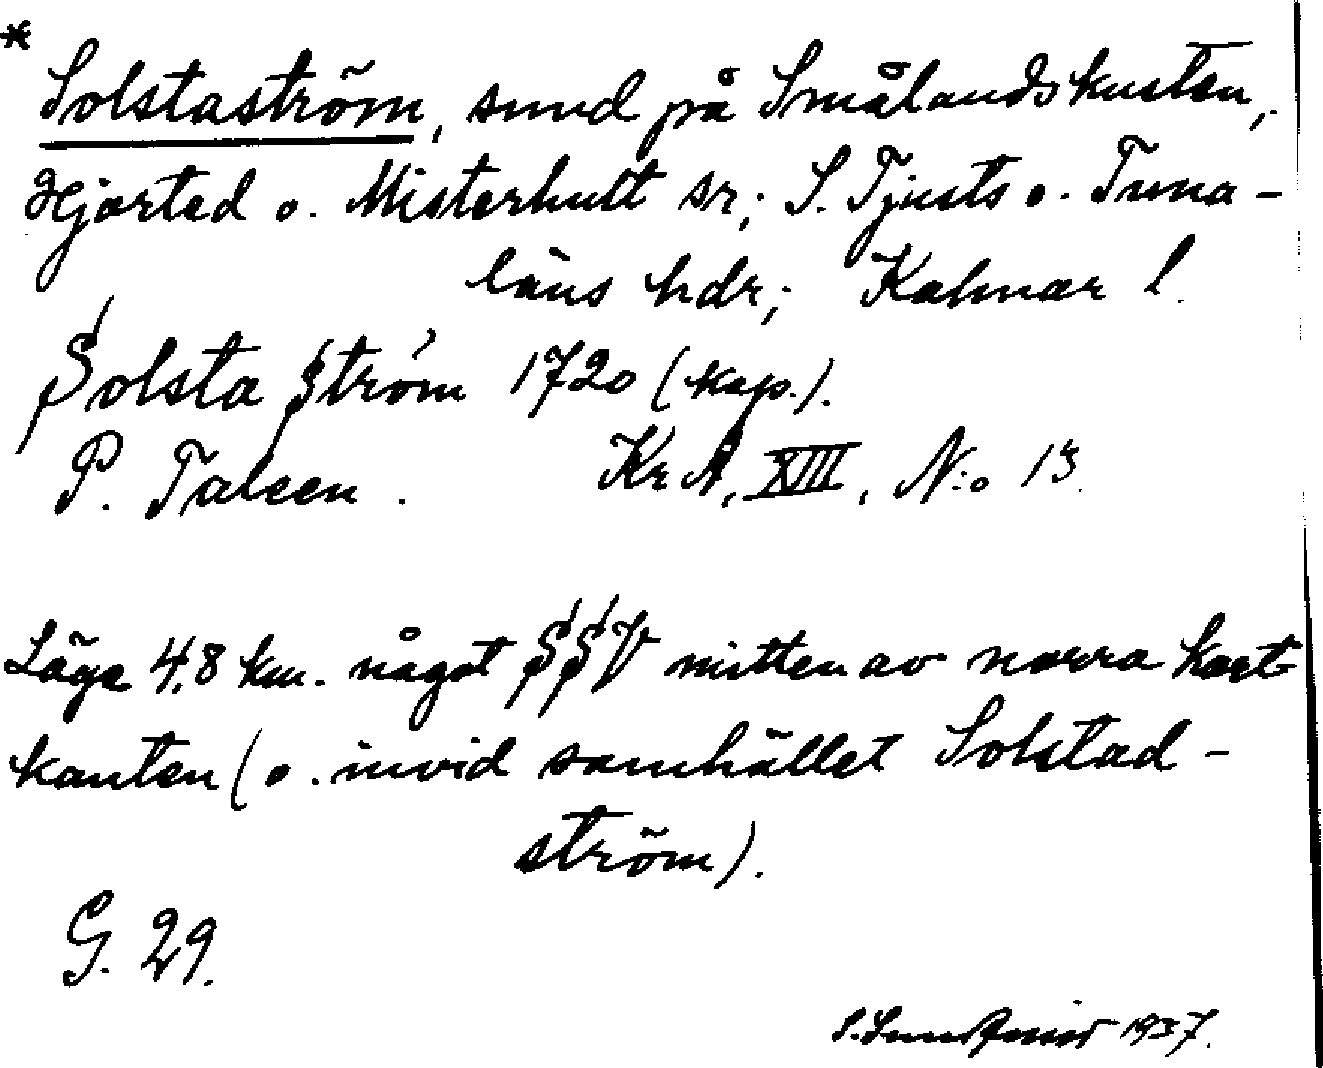 * Solstaström, sund på Smålandskusten,
Hjorted o. Misterhult sr; S. Tjusts o. Tuna-
läns hdr; Kalmar l.
Solsta Ström 1720 (kop.).
P. Taleen. KrA, XIII, N:o 13.
Läge 4,8 km. något SSV mitten av norra kart-
kanten (o. invid samhället Solstad-
ström).
G. 29.
S. 1937.